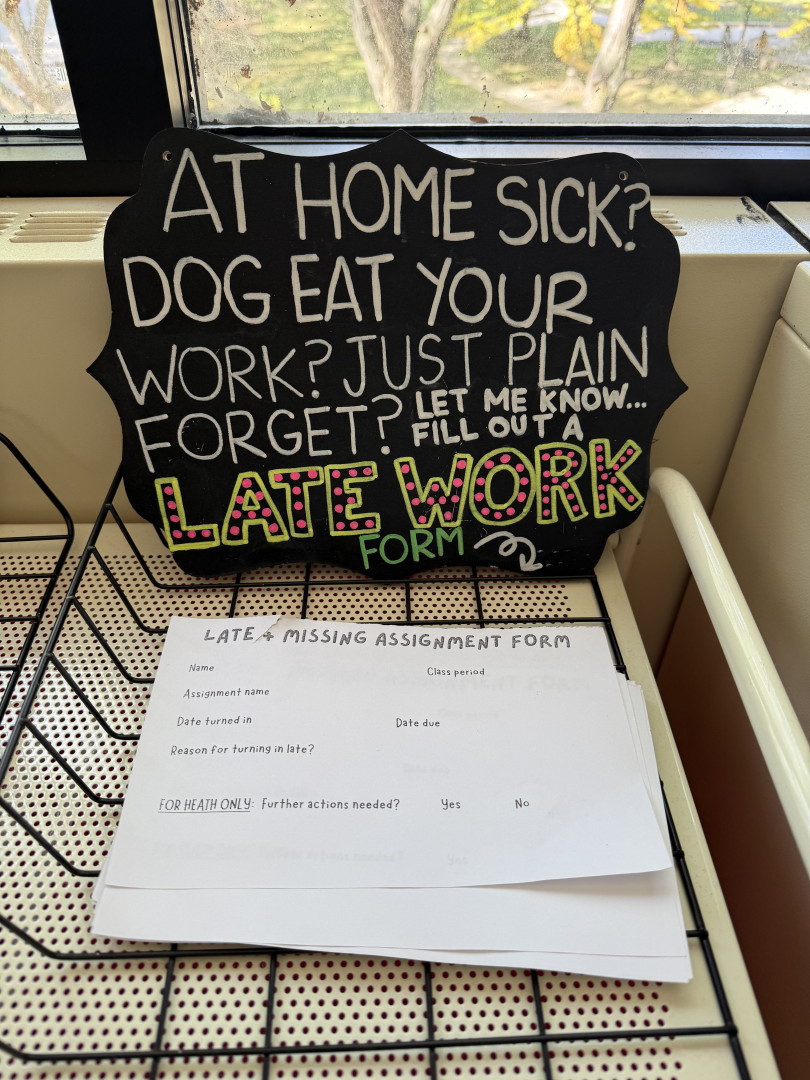 AT HOME SICK?
DOG EAT YOUR
WORK? JUST PLAIN
FORGET? LET ME KNOW...
FILL OUT A
LATE WORK
FORM
LATE + MISSING ASSIGNMENT FORM
Name Class period
Assignment name
Date turned in Date due
Reason for turning in late?
FOR HEATH ONLY: Further actions needed? Yes No